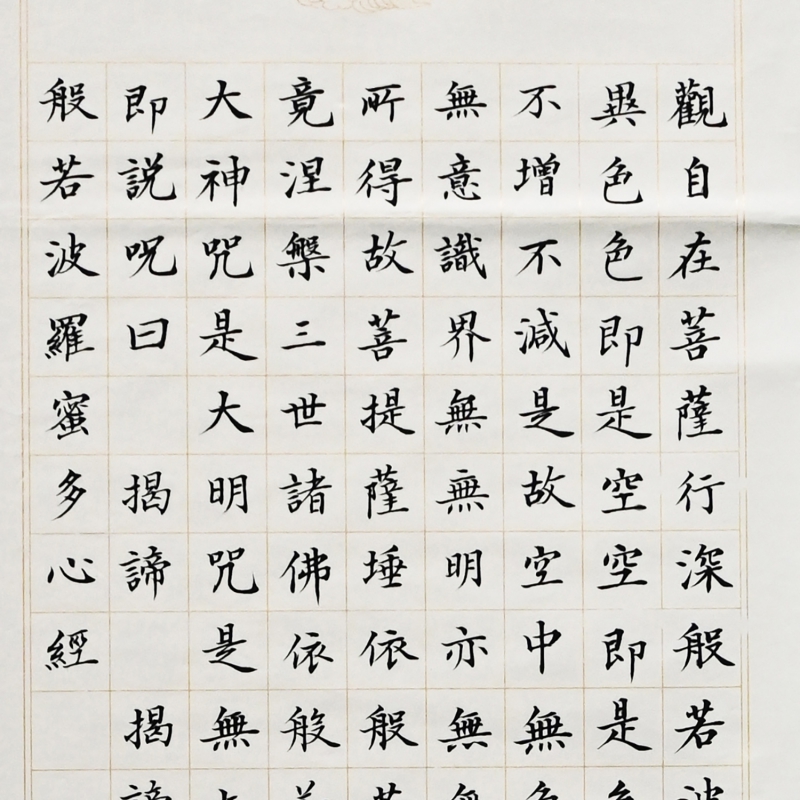 觀自在菩薩行深般若波
異色色即是空空即是色
不增不減是故空中無色
無意識界無無明亦無無
所得故菩提薩埵依般若
竟涅槃三世諸佛依般若
大神咒是大明咒是無上
即説呪曰 揭諦 揭諦
般若波羅蜜多心經